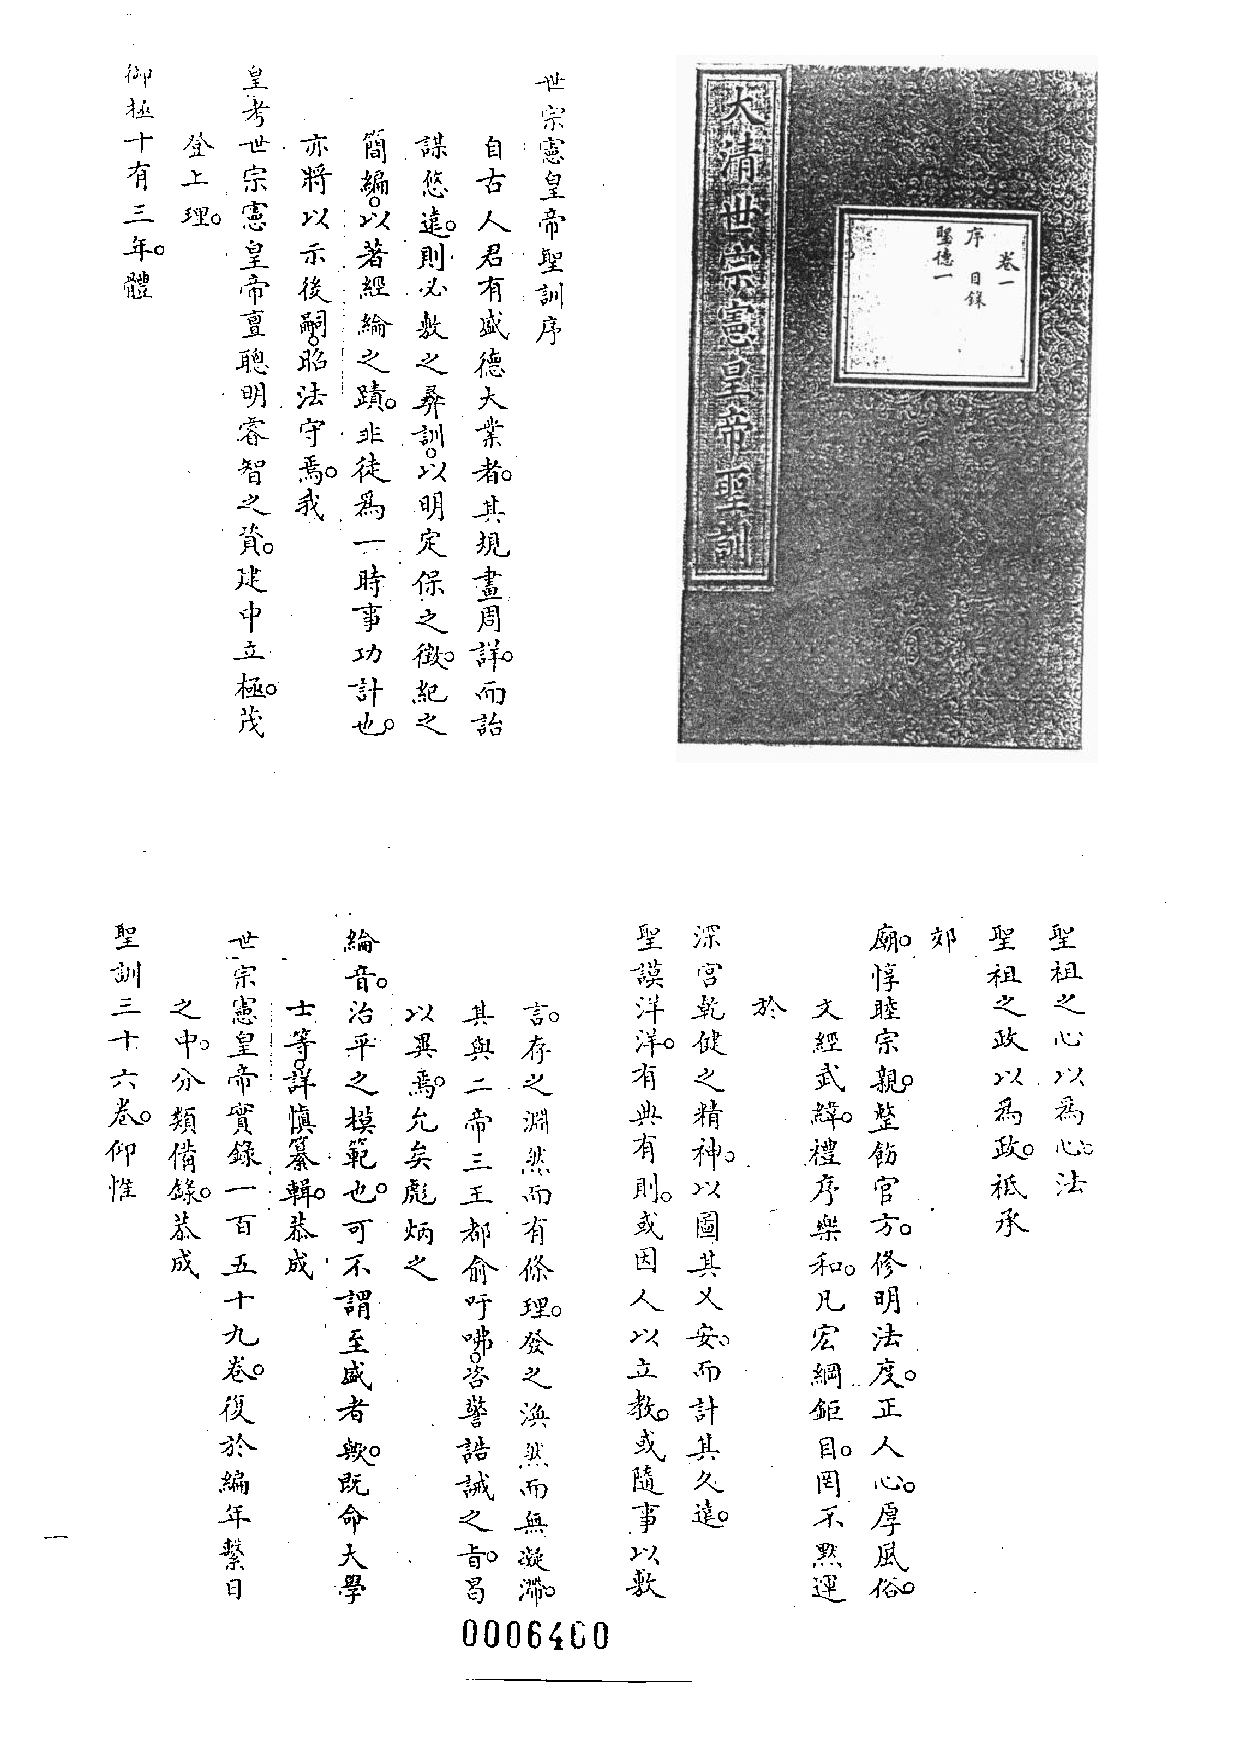 大清世宗憲皇帝聖訓
卷一
序 目錄
聖德一
世宗憲皇帝聖訓序
自古人君有盛德大業者。其規畫周詳。而詒
謀悠遠。則必敷之彝訓。以明定保之徵。紀之
簡編。以著經綸之蹟。非徒為一時事功計也。
亦將以示後嗣。昭法守焉。我
皇考世宗憲皇帝亶聰明睿智之資。建中立極。茂
登上理。
御極十有三年。體
聖祖之心以為心。法
聖祖之政以為政。祗承
郊
廟。惇睦宗親。整飭官方。修明法度。正人心。厚風俗。
文經武緯。禮序樂和。凡宏綱鉅目。罔不默運
於
深宮乾健之精神。以圖其乂安。而計其久遠。
聖謨洋洋。有典有則。或因人以立教。或隨事以敷
言。存之淵然而有條理。發之渙然而無凝滯。
其與二帝三王都俞吁咈。咨警誥誡之旨。曷
以異焉。允矣彪炳之
綸音。治平之模範也。可不謂至盛者歟。既命大學
士等。詳慎纂輯。恭成
世宗憲皇帝實錄一百五十九卷。復於編年繫日
之中。分類備錄。恭成
聖訓三十六卷。仰惟
一
0006400